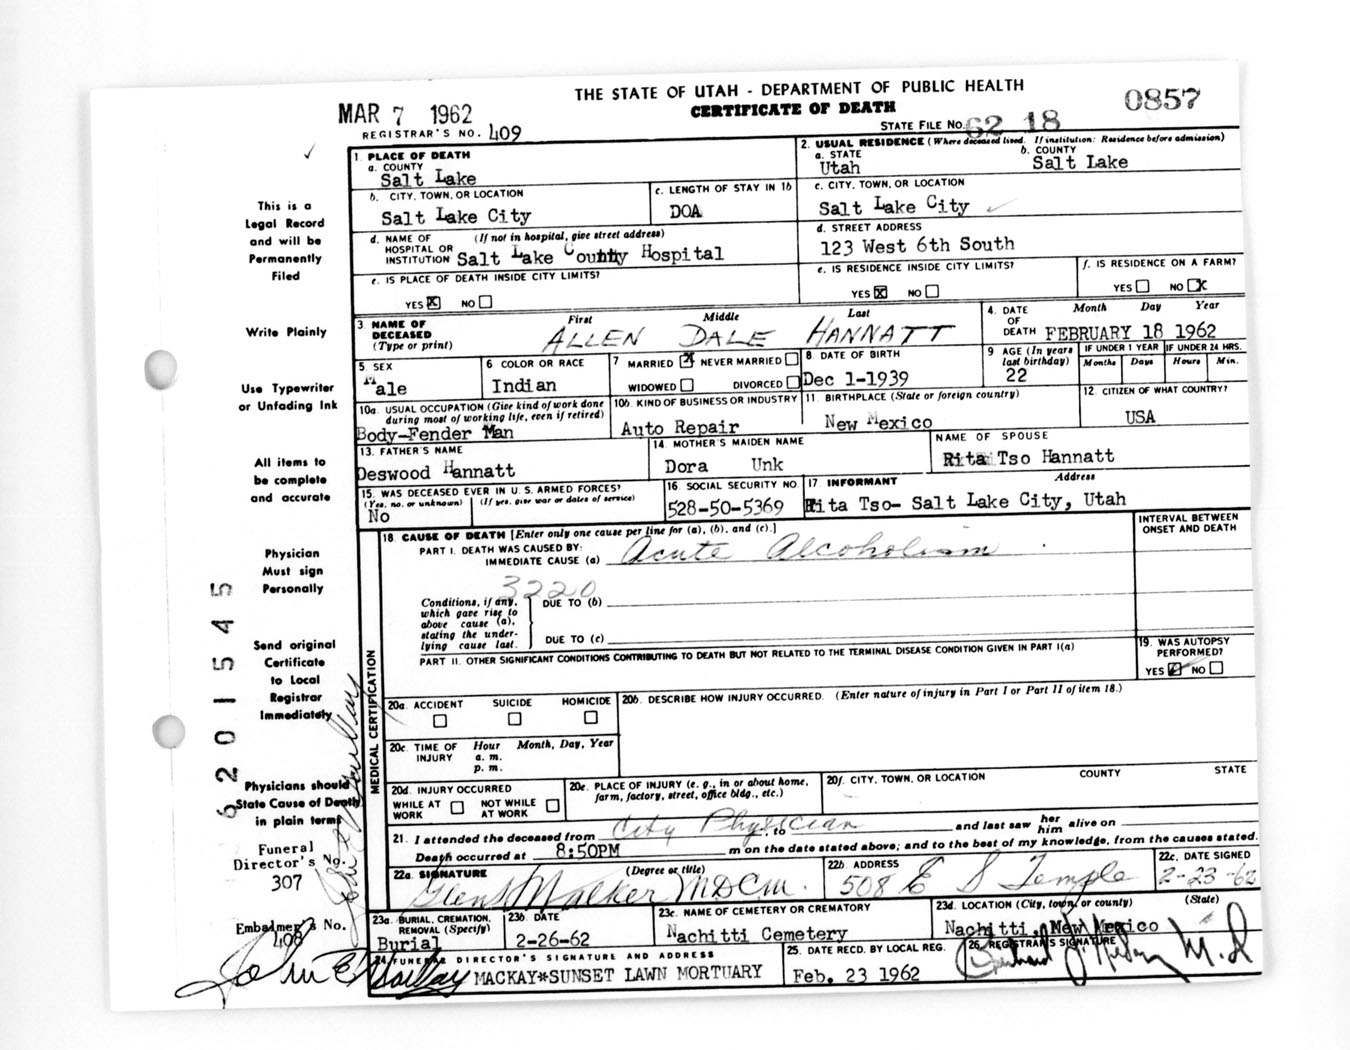 THE STATE OF UTAH - DEPARTMENT OF PUBLIC HEALTH
CERTIFICATE OF DEATH
0857
MAR 7 1962
REGISTRAR'S NO. 409
STATE FILE NO. 62 18
This is a
Legal Record
and will be
Permanently
Filed
Write Plainly
Use Typewriter
or Unfading Ink
All items to
be complete
and accurate
Physician
Must sign
Personally
Send original
Certificate
to Local
Registrar
Immediately
Physicians should
State Cause of Death
in plain terms
Funeral
Director's No.
307
Embalmer's No.
408
6201545
1. PLACE OF DEATH
a. COUNTY
Salt Lake
2. USUAL RESIDENCE (Where deceased lived. If institution: Residence before admission)
a. STATE
Utah
b. COUNTY
Salt Lake
b. CITY, TOWN, OR LOCATION
Salt Lake City
c. LENGTH OF STAY IN 1b
DOA
c. CITY, TOWN, OR LOCATION
Salt Lake City
d. NAME OF HOSPITAL OR INSTITUTION (If not in hospital, give street address)
Salt Lake County Hospital
d. STREET ADDRESS
123 West 6th South
e. IS PLACE OF DEATH INSIDE CITY LIMITS?
YES X NO
e. IS RESIDENCE INSIDE CITY LIMITS?
YES X NO
f. IS RESIDENCE ON A FARM?
YES NO X
3. NAME OF DECEASED (Type or print)
First Middle Last
ALLEN DALE HANNATT
4. DATE OF DEATH
Month Day Year
FEBRUARY 18 1962
5. SEX
Male
6 COLOR OR RACE
Indian
7 MARRIED X NEVER MARRIED
WIDOWED DIVORCED
8. DATE OF BIRTH
Dec 1-1939
9 AGE (In years last birthday)
22
IF UNDER 1 YEAR
Months Days
IF UNDER 24 HRS.
Hours Min.
10a. USUAL OCCUPATION (Give kind of work done during most of working life, even if retired)
Body-Fender Man
10b. KIND OF BUSINESS OR INDUSTRY
Auto Repair
11. BIRTHPLACE (State or foreign country)
New Mexico
12. CITIZEN OF WHAT COUNTRY?
USA
13. FATHER'S NAME
Deswood Hannatt
14. MOTHER'S MAIDEN NAME
Dora Unk
NAME OF SPOUSE
Rita Tso Hannatt
15. WAS DECEASED EVER IN U. S. ARMED FORCES?
(Yes, no, or unknown) (If yes, give war or dates of service)
No
16. SOCIAL SECURITY NO.
528-50-5369
17. INFORMANT Address
Rita Tso- Salt Lake City, Utah
18. CAUSE OF DEATH [Enter only one cause per line for (a), (b), and (c).]
INTERVAL BETWEEN ONSET AND DEATH
PART I. DEATH WAS CAUSED BY:
IMMEDIATE CAUSE (a) Acute Alcoholism
3220
Conditions, if any, which gave rise to above cause (a), stating the underlying cause last.
DUE TO (b)
DUE TO (c)
PART II. OTHER SIGNIFICANT CONDITIONS CONTRIBUTING TO DEATH BUT NOT RELATED TO THE TERMINAL DISEASE CONDITION GIVEN IN PART I(a)
19. WAS AUTOPSY PERFORMED?
YES NO
MEDICAL CERTIFICATION
20a. ACCIDENT SUICIDE HOMICIDE
20b. DESCRIBE HOW INJURY OCCURRED. (Enter nature of injury in Part I or Part II of item 18.)
20c. TIME OF INJURY
Hour Month, Day, Year
a. m.
p. m.
20d. INJURY OCCURRED
WHILE AT WORK NOT WHILE AT WORK
20e. PLACE OF INJURY (e. g., in or about home, farm, factory, street, office bldg., etc.)
20f. CITY, TOWN, OR LOCATION COUNTY STATE
21. I attended the deceased from City Physician, to and last saw her him alive on
Death occurred at 8:50PM m on the date stated above; and to the best of my knowledge, from the causes stated.
22a. SIGNATURE (Degree or title)
Glen Walker MDCM.
22b. ADDRESS
508 E S Temple
22c. DATE SIGNED
2-23-62
23a. BURIAL, CREMATION, REMOVAL (Specify)
Burial
23b. DATE
2-26-62
23c. NAME OF CEMETERY OR CREMATORY
Nachitti Cemetery
23d. LOCATION (City, town, or county) (State)
Nachitti, New Mexico
24. FUNERAL DIRECTOR'S SIGNATURE AND ADDRESS
John E
MACKAY*SUNSET LAWN MORTUARY
25. DATE RECD. BY LOCAL REG.
Feb. 23 1962
26. REGISTRAR'S SIGNATURE
M.D